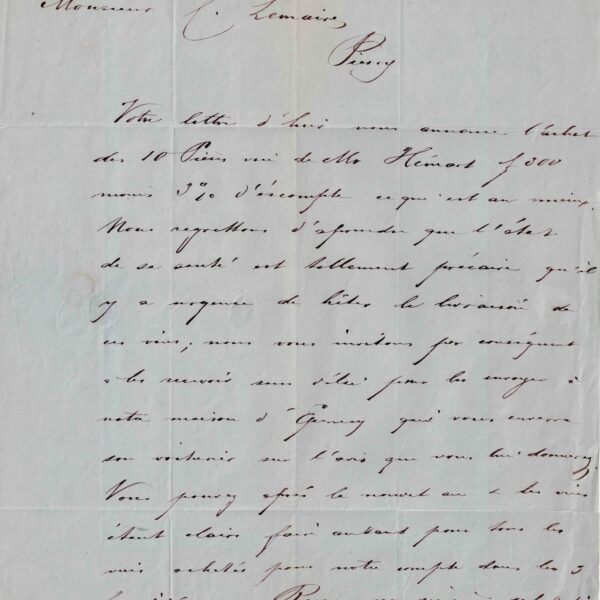 Monsieur C. Lemaire,
Pierry
Votre lettre d'hier nous annonce l'achat
des 10 Pièces vin de Mr Hémart f 300
moins 3 % d'escompte ce qui est au mieux.
Nous regrettons d'apprendre que l'état
de sa santé est tellement précaire qu'il
y a urgence de hâter la livraison de
ces vins; nous vous invitons par conséquent
à les recevoir sans délai pour les envoyer à
notre maison d'Épernay qui vous enverra
son voiturier sur l'avis que vous lui donnerez.
Vous pouvez après le nouvel an & les vins
étant clairs faire autant pour tous les
vins achetés pour notre compte dans les 3